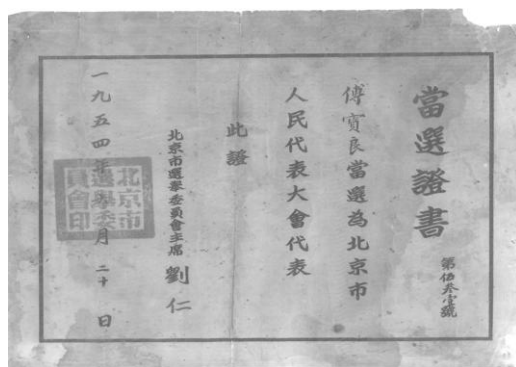 當選證書
第伍叁壹號
傅寶良當選為北京市
人民代表大會代表
此證
北京市選舉委員會主席 劉仁
一九五四年 月二十日
北京市
選舉委
員會印